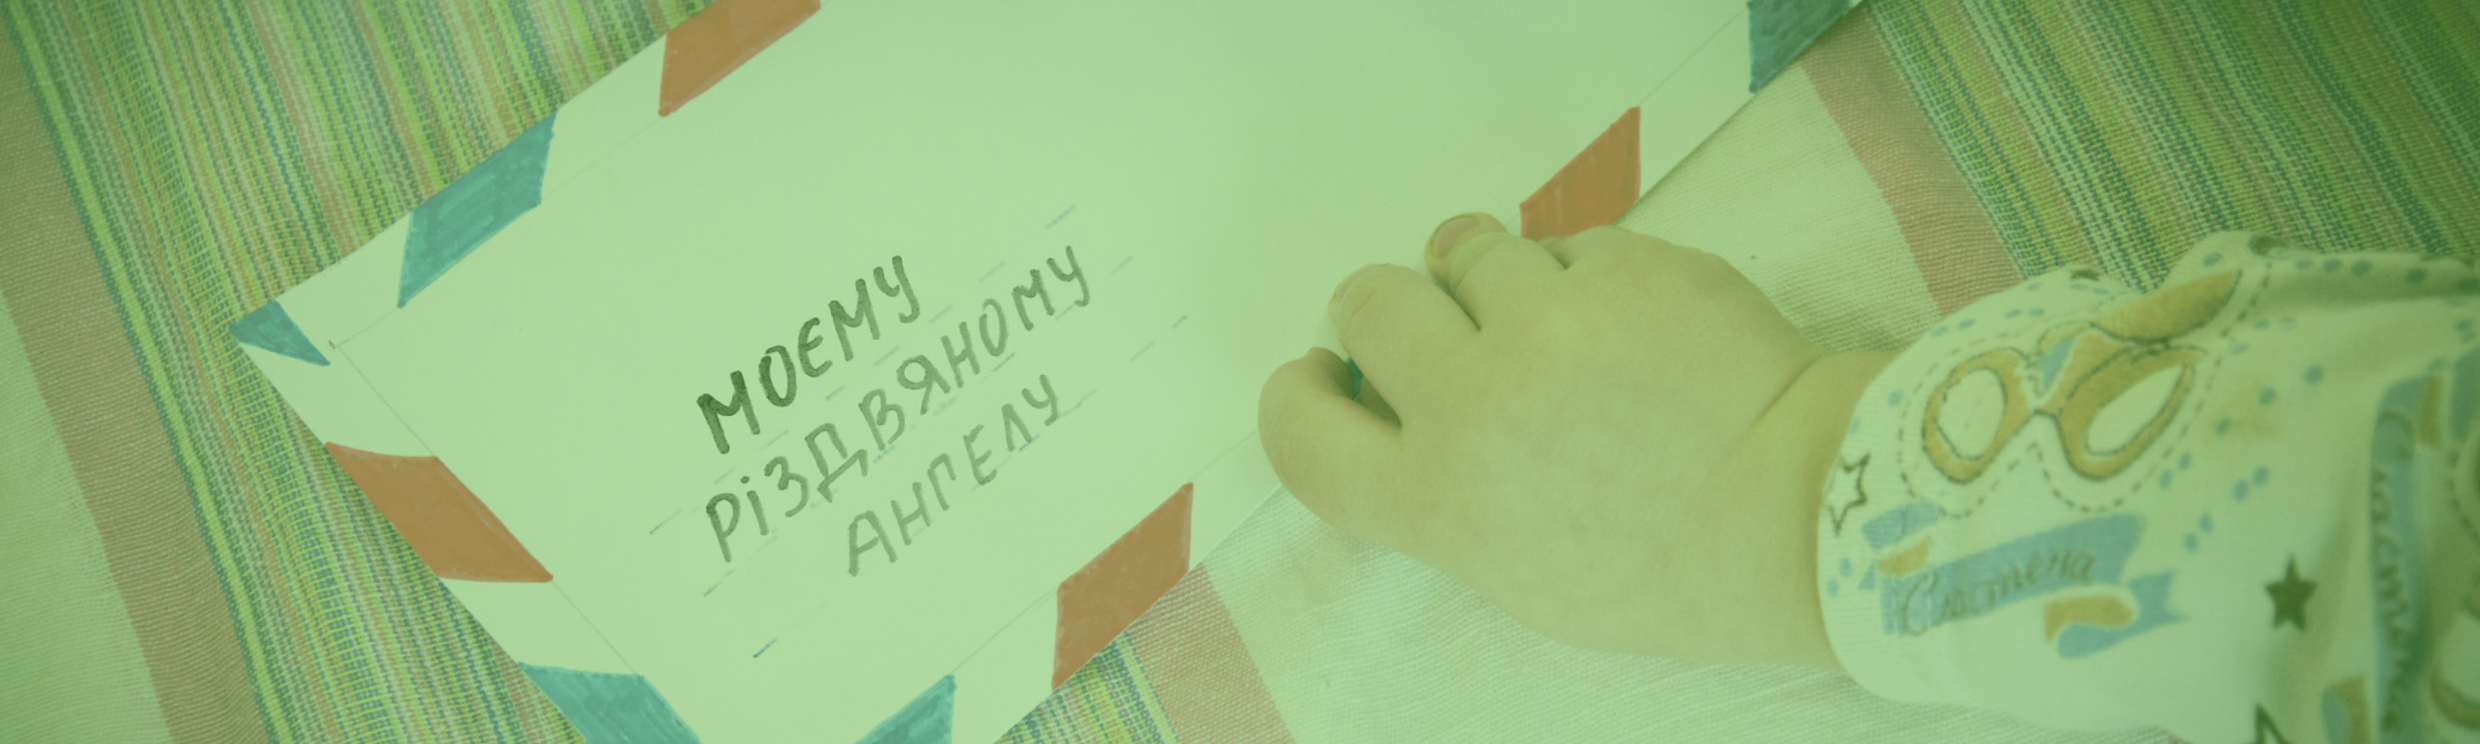 МОЄМУ
РІЗДВЯНОМУ
АНГЕЛУ
Сластена